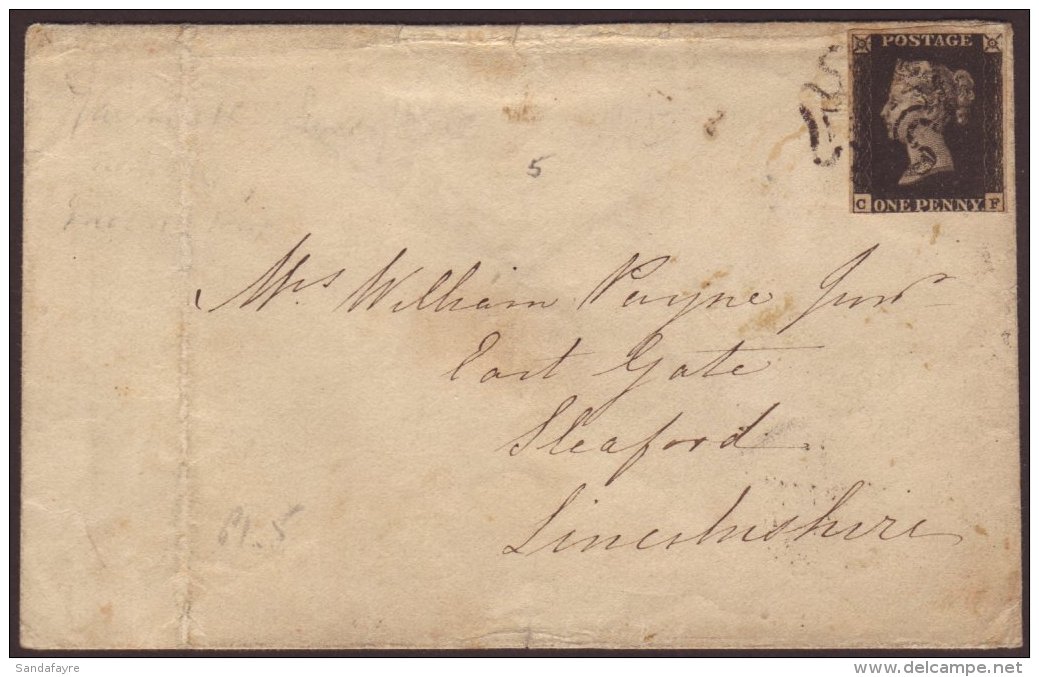 POSTAGE
C ONE PENNY F
5
Mrs William Payne Junr
East Gate
Sleaford
Lincolnshire
Pl. 5
Sandafayre
delcampe.net